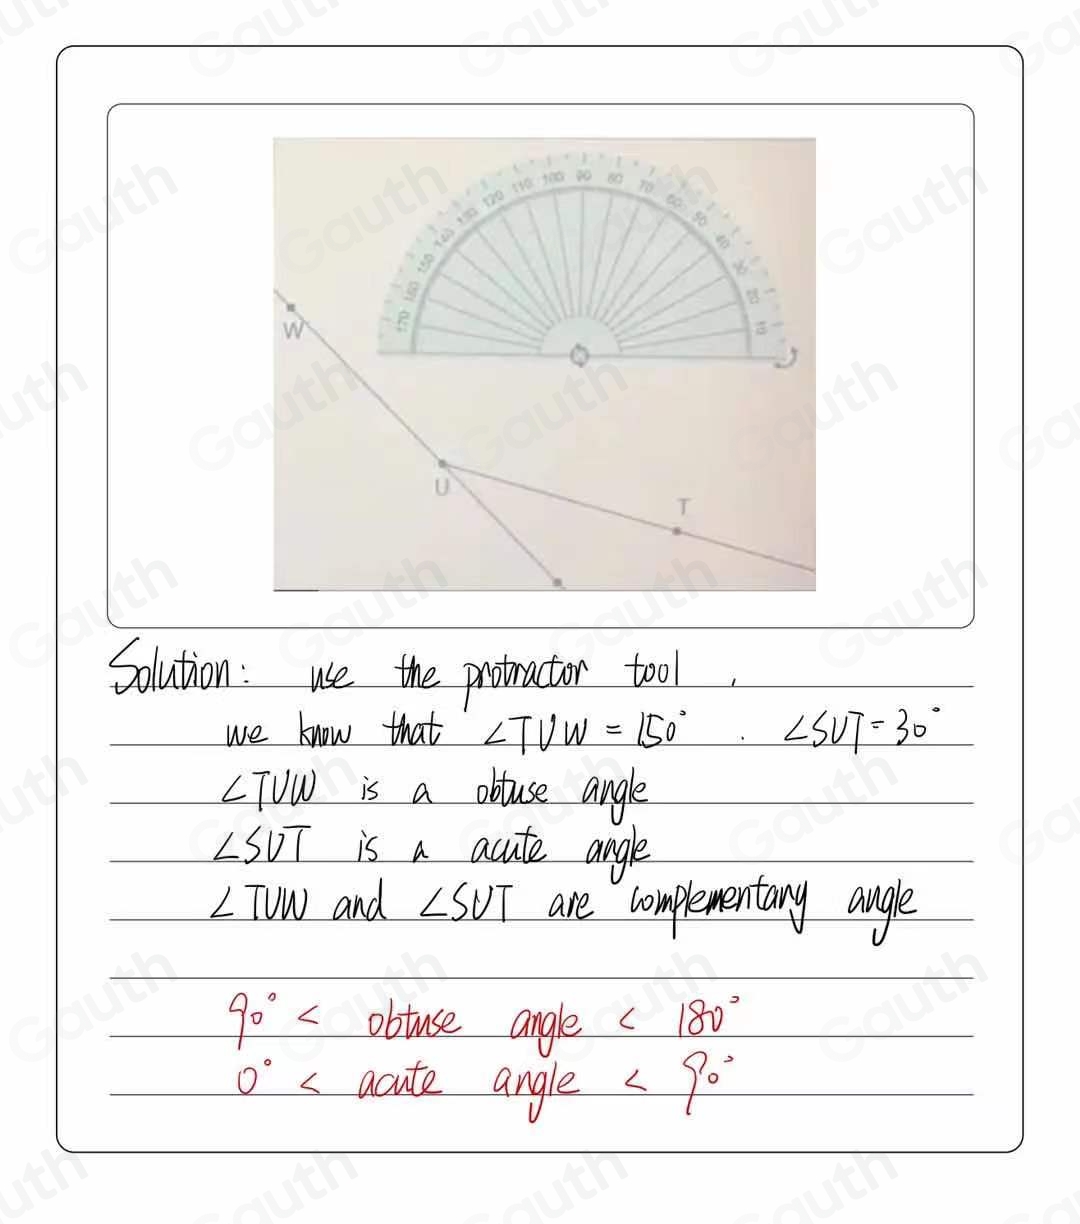 170 160 150 140 130 120 110 100 90 80 70 60 50 40 30 20 10
W
U
T
Solution: use the protractor tool,
we know that ∠TUW = 150°. ∠SUT = 30°
∠TUW is a obtuse angle
∠SUT is a acute angle
∠TUW and ∠SUT are complementary angle
90° < obtuse angle < 180°
0° < acute angle < 90°
Gauth